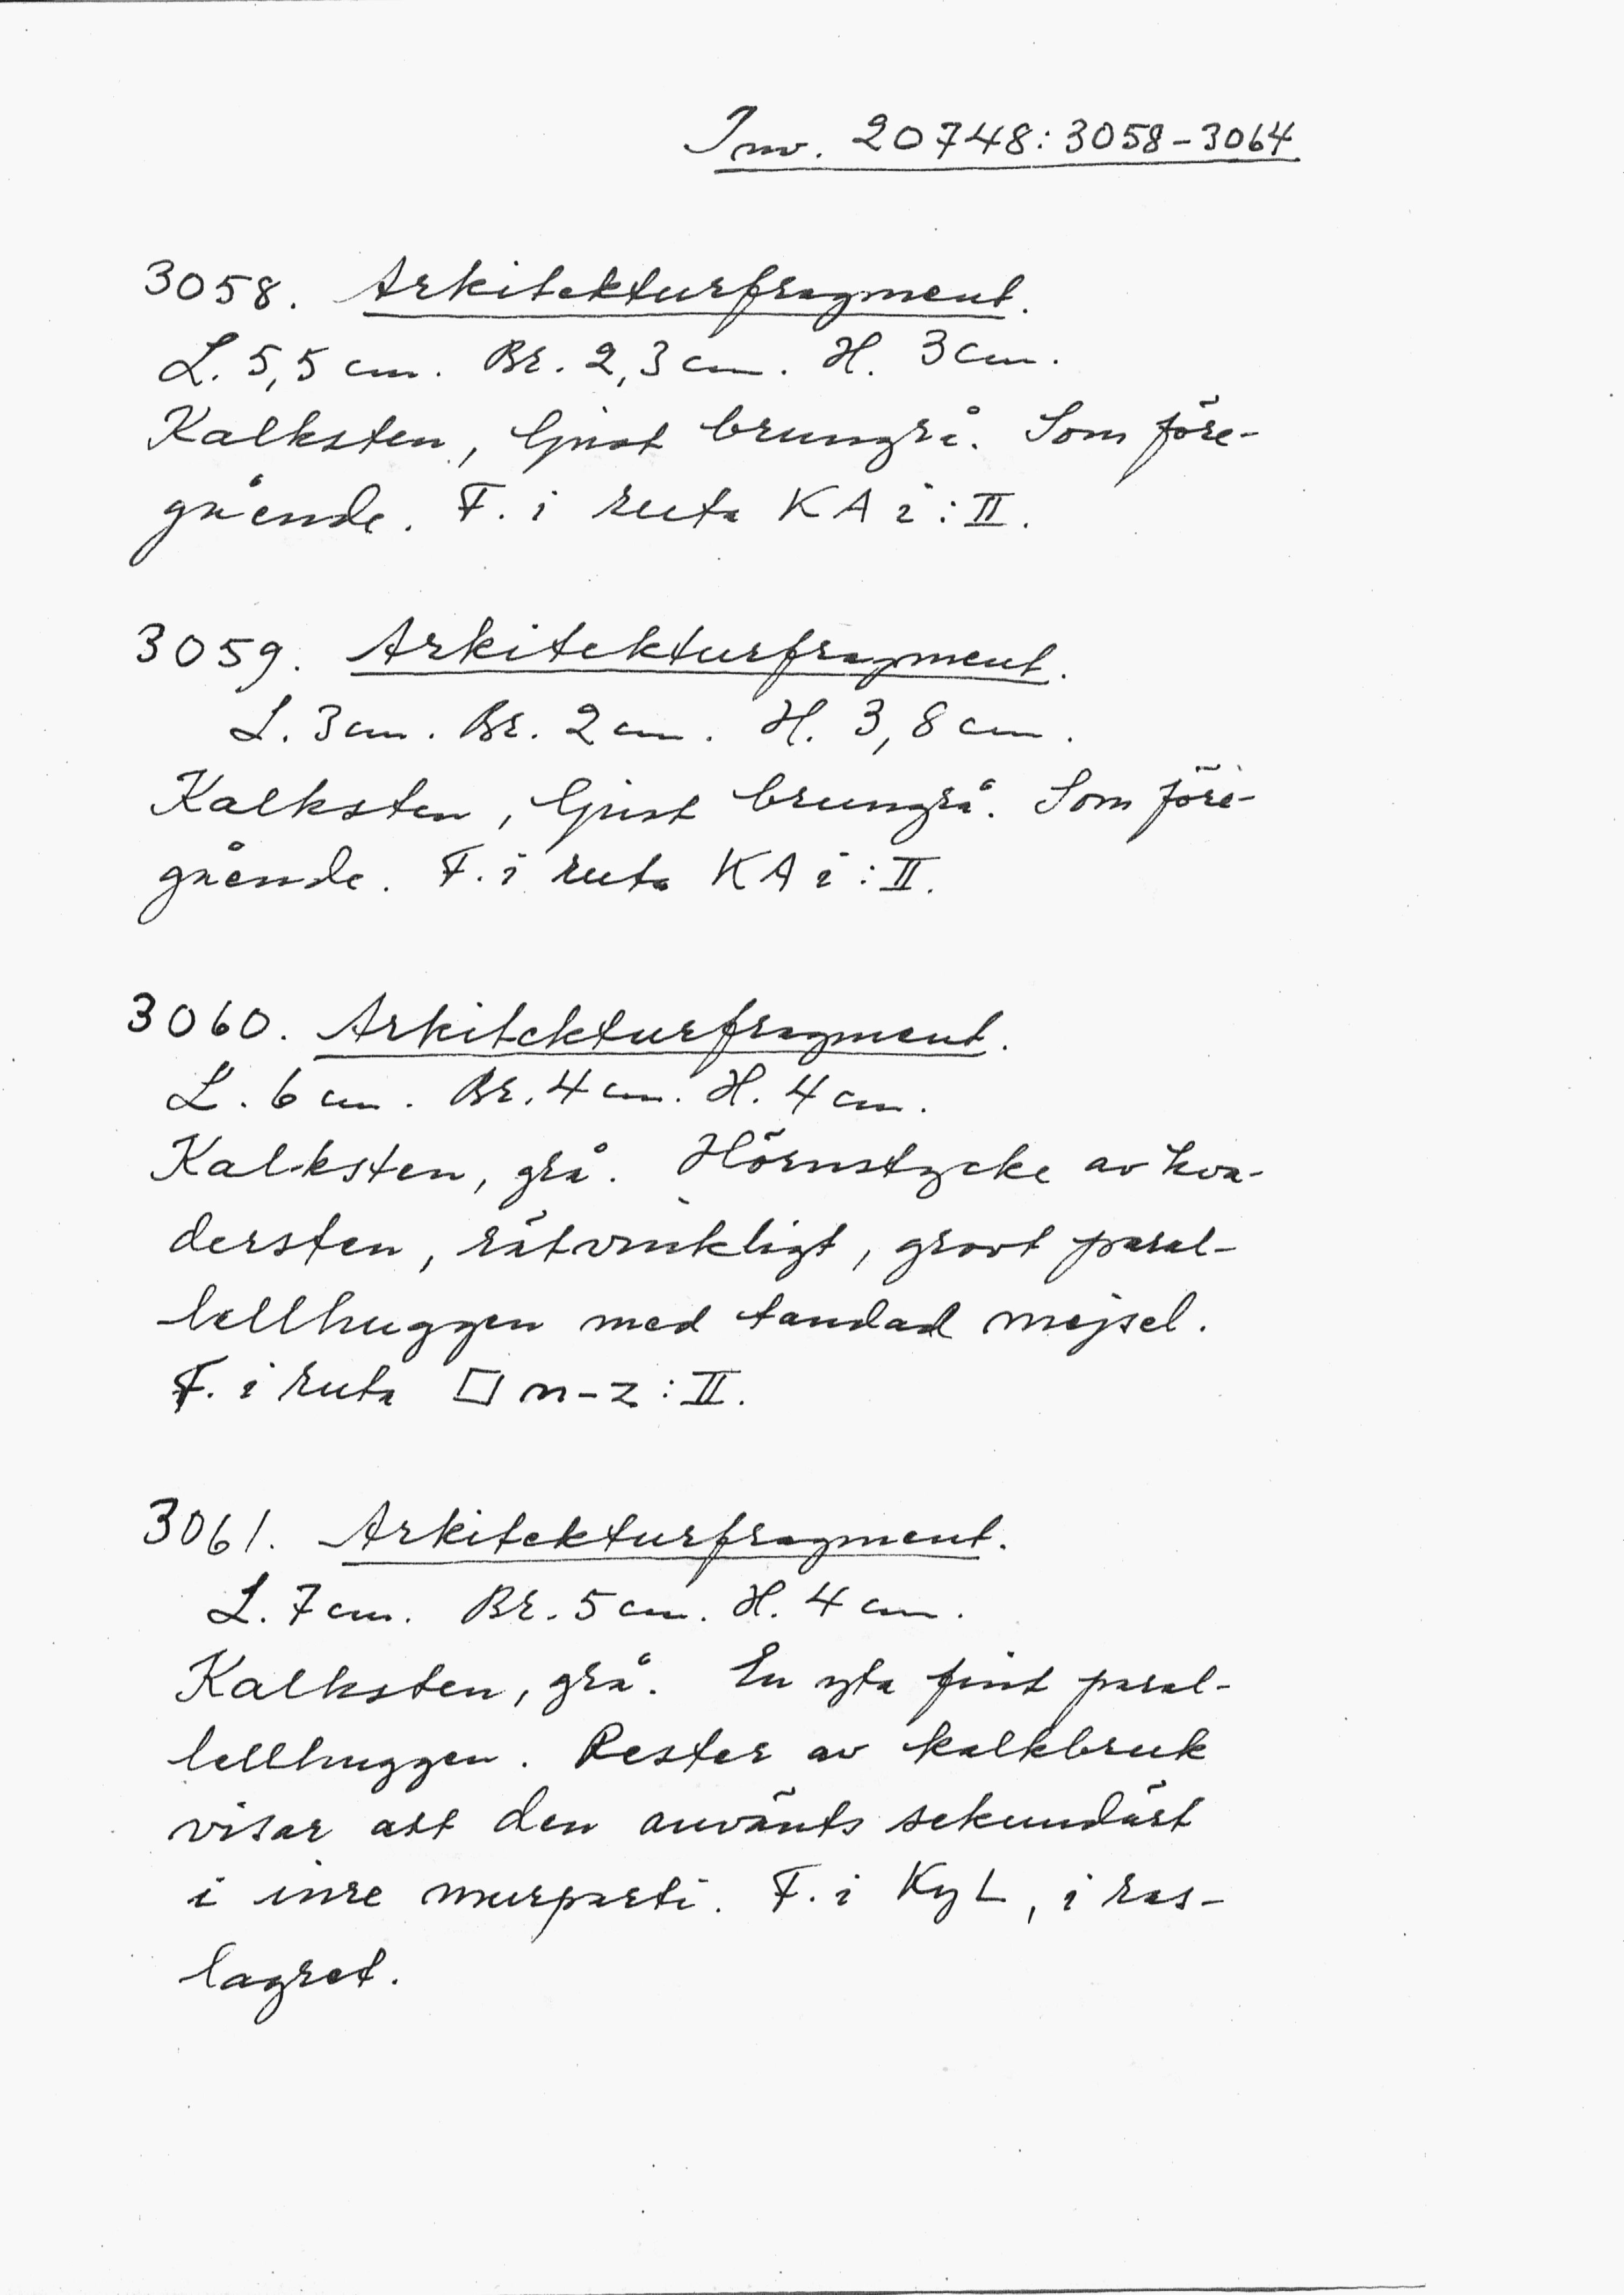 Inv. 20748:3058-3064
3058. Arkitekturfragment.
L. 5,5 cm. Br. 2,3 cm. H. 3 cm.
Kalksten, ljust brungrå. Som före-
gående. F. i ruta KA i:II.
3059. Arkitekturfragment.
L. 3 cm. Br. 2 cm. H. 3,8 cm.
Kalksten, ljust brungrå. Som före-
gående. F. i ruta KA i:II.
3060. Arkitekturfragment.
L. 6 cm. Br. 4 cm. H. 4 cm.
Kalksten, grå. Hörnstycke av kva-
dersten, rätvinkligt, grovt paral-
lellhuggen med tandad mejsel.
F. i ruta □ n-z:II.
3061. Arkitekturfragment.
L. 7 cm. Br. 5 cm. H. 4 cm.
Kalksten, grå. En yta fint paral-
lellhuggen. Rester av kalkbruk
visar att den använts sekundärt
i inre murparti. F. i KyL, i ras-
lagret.